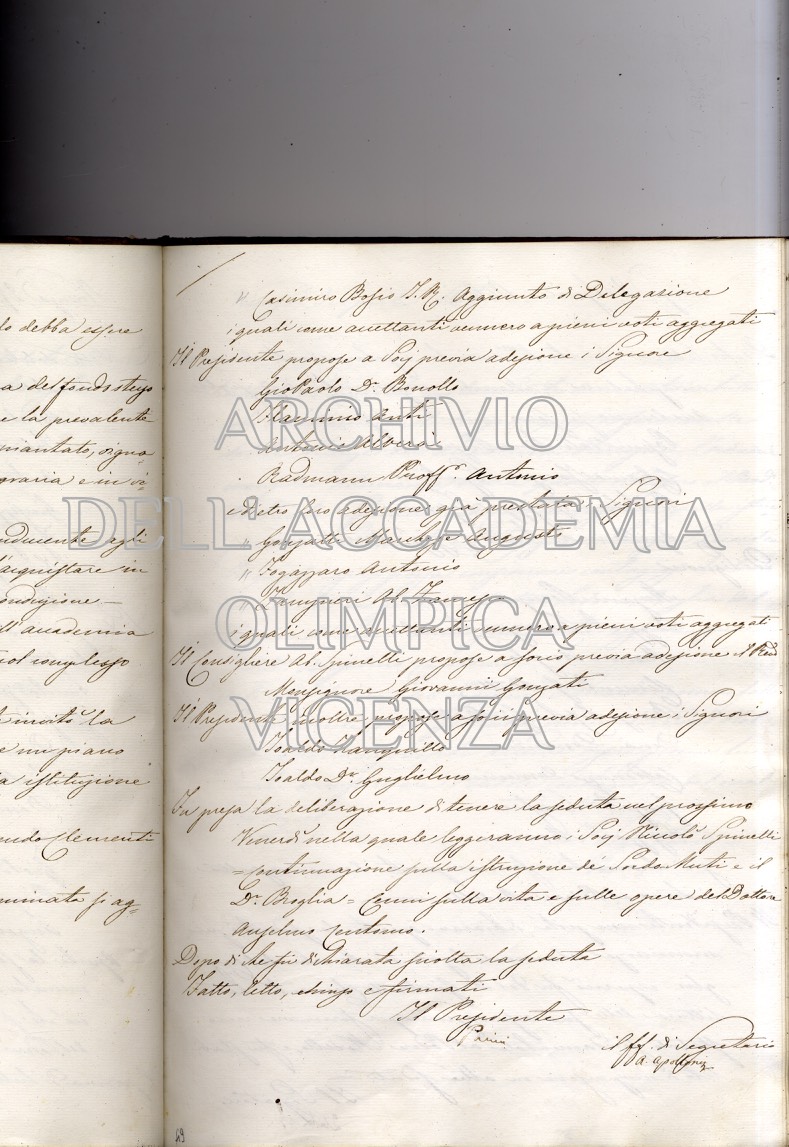 lo debba essere
a del fondo stesso
e la prevalente
piantato, vigna-
graria e in
agli
acquistare in
condizione —
all'accademia
col complesso
invitò la
e un piano
a istituzione
Clementi
minata si ag-
" Casimiro Bosio I. R. Aggiunto di Delegazione
i quali come accettanti vennero a pieni voti aggregati
Il Presidente propose a Socj previa adesione i Signori
Gio Paolo Dr. Bonollo
Flaminio Anti
Antonio Alverà
Radmann Proffr. Antonio
e dietro loro adesione già prestata i Signori
" Gonzatti Augusto
" Fogazzaro Antonio
" Ab.
i quali come accettanti vennero a pieni voti aggregati
Il Consigliere Ab. Spinelli propose a socio previa adesione il
Monsignore Giovanni Gonzati
Il Presidente inoltre propose a socii previa adesione i Signori
Tranquillo
Dr. Guglielmo
Fu presa la deliberazione di tenere la seduta nel prossimo
Venerdì nella quale leggeranno i Socj Niccolò Spinelli
= continuazione sulla istruzione de' Sordo Muti e il
Dr. Broglia = Cenni sulla vita e sulle opere del Dottore
Anselmo
Dopo di che fù dichiarata sciolta la seduta
Fatto, letto, chiuso e firmati
Il Presidente
il ff. di Segretario
A.
49
ARCHIVIO
DELL'ACCADEMIA
OLIMPICA
VICENZA